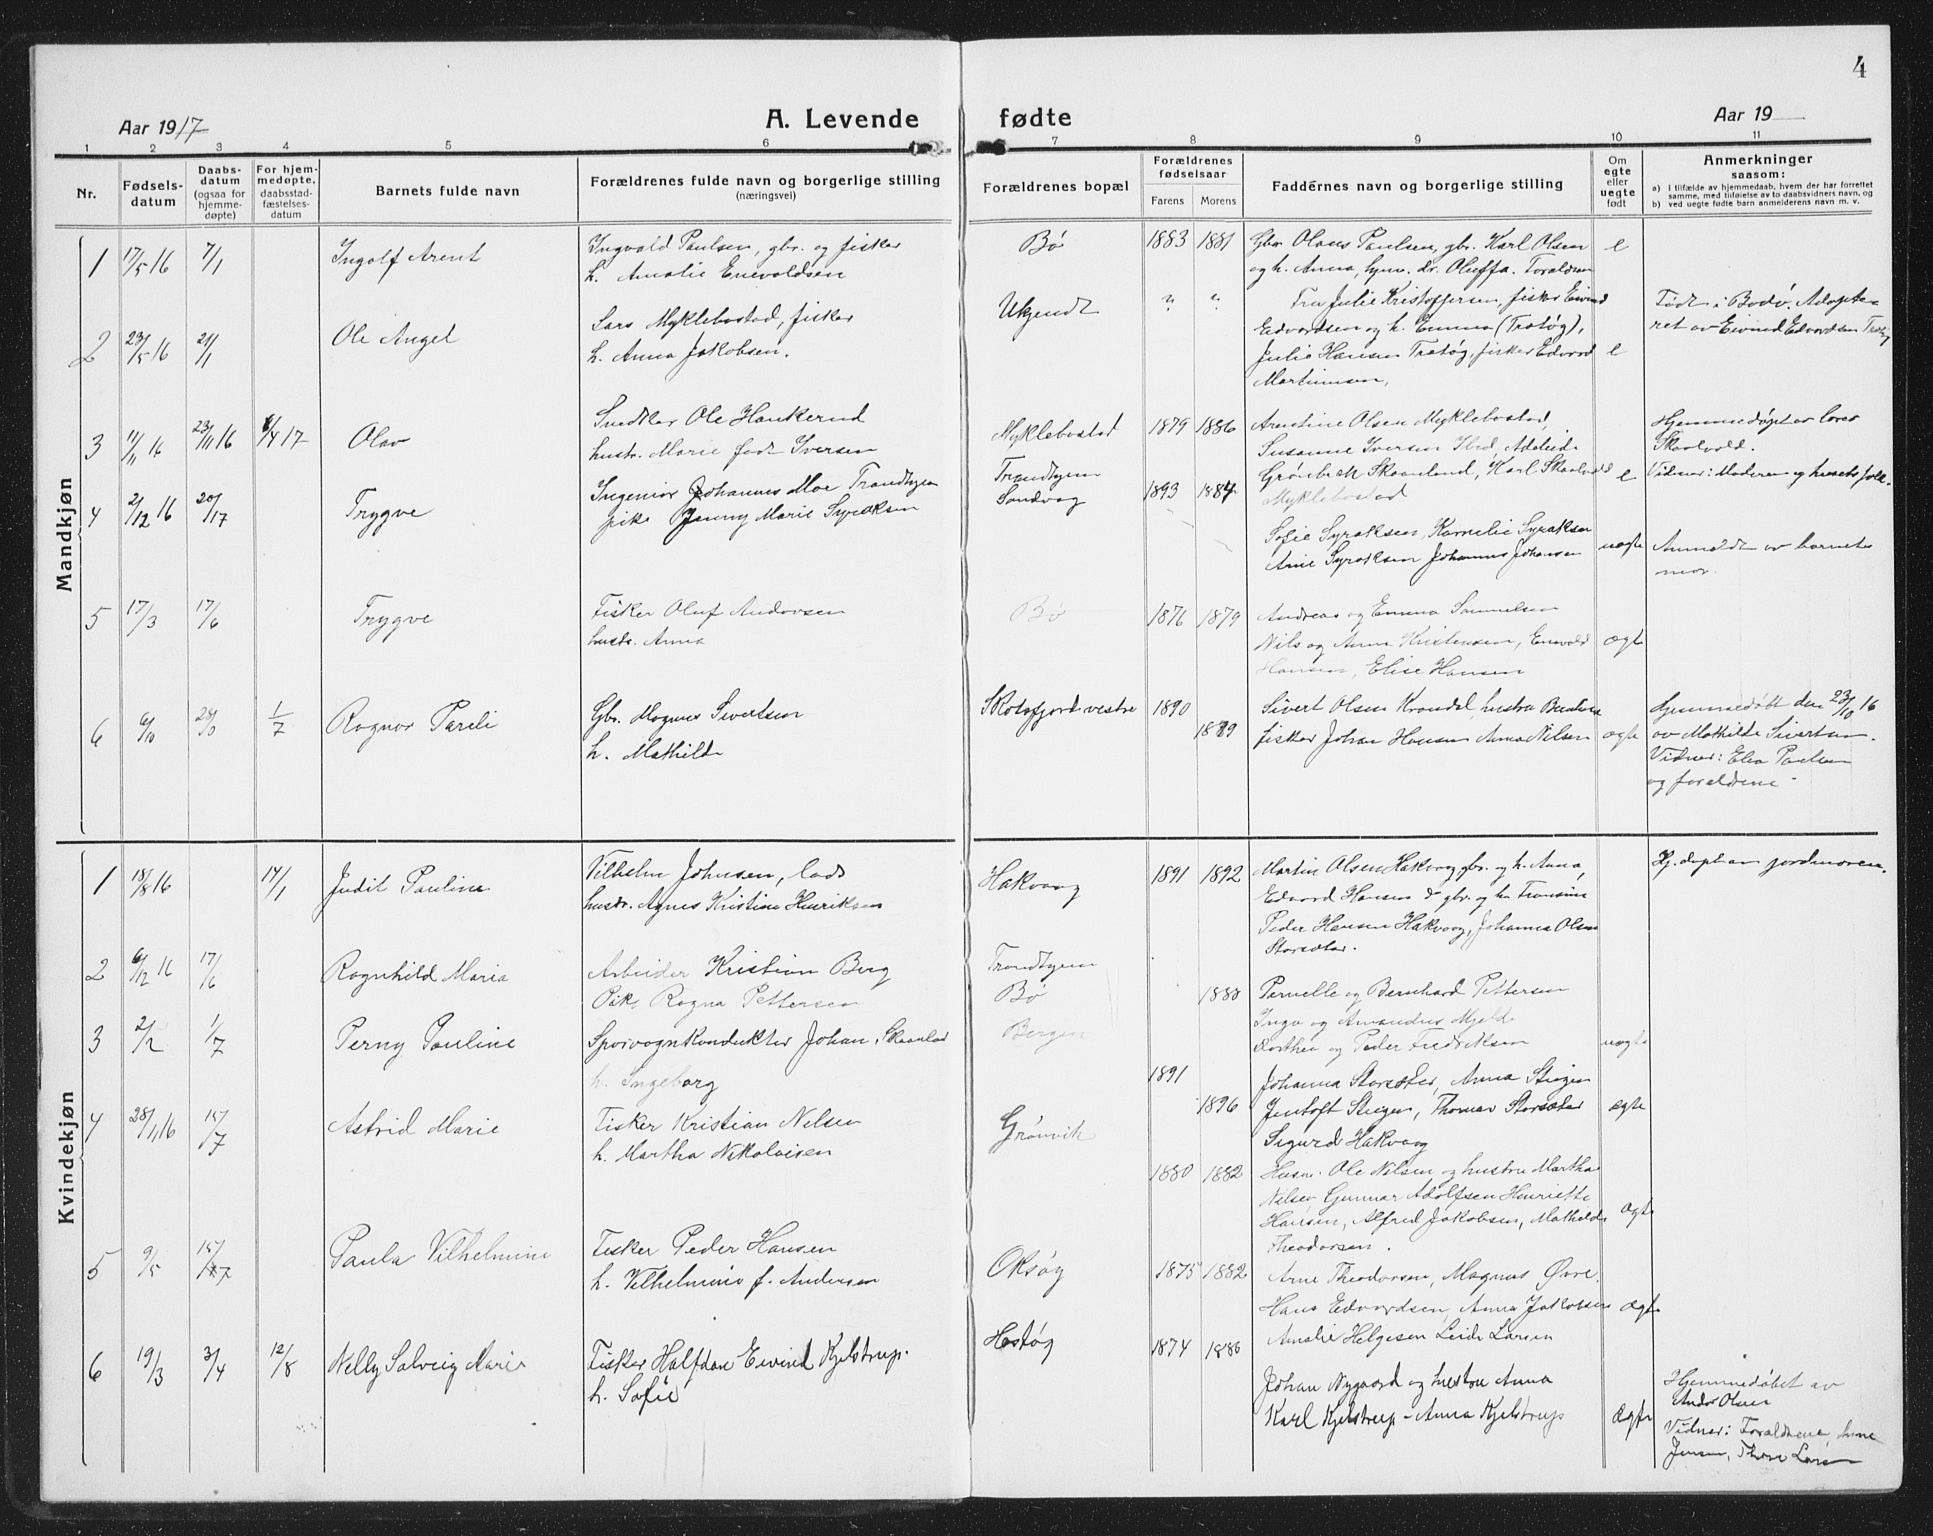 4
Aar 1917
A. Levende fødte
Aar 19
1 2 3 4 5 6 7 8 9 10 11
Nr.
Fødsels-
datum
Daabs-
datum
(ogsaa for
hjemme-
døpte)
For hjem-
medøpte,
daabsstad-
fæstelses-
datum
Barnets fulde navn
Forældrenes fulde navn og borgerlige stilling
(næringsvei)
Forældrenes bopæl
Forældrenes
fødselsaar
Farens Morens
Faddernes navn og borgerlige stilling
Om
egte
eller
uegte
født
Anmerkninger
saasom:
a) i tilfælde av hjemmedaab, hvem der har forrettet
samme, med tilføielse av to daabsvidners navn, og
b) ved uegte fødte barn anmelderens navn m. v.
Mandkjøn
1 17/5 16 7/1 Ingolf Arent
Ingvald Paulsen, gbr. og fisker
h. Amalie Enevoldsen
Bø 1883 1881
Gbr. Olaus Paulsen, gbr. Karl Olsen
og h. Anna, Oluffa Toraldsen
e
2 23/5 16 21/1 Ole Angel
Lars Myklebostad, fisker
h. Anna Jakobsen.
Ukjendt " "
Fru Julie Kristoffersen, fisker Eivind
Edvardsen og h. Emma (Tratøg),
Julie Hansen Tratøg, fisker Edvard
Martinusen,
e
Født i Bodø. Adopte-
ret av Eivind Edvardsen
3 11/11 16 23/11 16 6/4 17 Olav
Snedker Ole Haukerud
hustr. Marie født Iversen
Myklebostad 1879 1886
Arentine Olsen Myklebostad,
Susanne Iversen Ibid, Adeleide
Grønbeck Skaanland, Karl Skaalvold
Myklebostad
e
Hjemmedøpt av lærer
Skaalvold.
Vidner: Moderen og husets folk.
4 2/12 16 20/17 Trygve
Ingeniør Johannes Moe Trondhjem
pike Jenny Marie Syraksen
Trondhjem
Sandvaag
1893 1884
Sofie Syraksen, Kornelie Syraksen
Arne Syraksen Johannes Johansen
uegte
Anmeldt av barnets
mor.
5 17/3 17/6 Trygve
Fisker Oluf Andorsen
hustr. Anna
Bø 1876 1879
Andreas og Emma Samuelsen
Nils og Anna Kristensen, Enevold
Hansen, Elise Hansen
ægte
6 6/10 1/7 Ragnar Pareli
Gbr. Magnus Sivertsen
h. Mathilde
Skotsfjord vestre 1890 1889
Sivert Olsen Krondal hustru Beutine
fisker Johan Hansen Anna Nilsen
ægte
Hjemmedøbt den 23/10 16
av Mathilde Sivertsen.
Vidner: Elea Paulsen
og forældrene
Kvindekjøn
1 18/8 16 14/1 Judit Pauline
Vilhelm Johnsen, lods
hustr. Agnes Kristine Henriksen
Hakvaag 1891 1892
Martin Olsen Hakvaag gbr. og h. Anna,
Edvard Hansen gbr. og h. Fransine
Peder Hansen Hakvaag, Johanna Olsen
Storsæter.
Hj. døpt av jordmoren.
2 6/12 16 17/6 Ragnhild Maria
Arbeider Kristian Berg
Pike Ragna Pettersen
Trondhjem
Bø
1888
Pernelle og Bernhard Pettersen
Inga og Amandus Mjelde
Dorthea og Peder Fredriksen
uegte
3 2/2 1/7 Perny Pauline
Sporvognkonduktør Johan Skaanlad
h. Ingeborg
Bergen
1891 1896
Johanna Storsæter, Anna Steigen
Jentoft Steigen, Thomas Storsæter
Sigurd Hakvaag
ægte
4 28/11 16 15/7 Astrid Marie
Fisker Kristian Nilsen
h. Martha Nikolaisen
Grønvik
1880 1882
Husm. Ole Nilsen og hustru Martha
Nilsen Gunnar Adolfsen Henriette
Hansen, Alfred Jakobsen, Mathilde
Theodorsen.
ægte
5 9/5 15/7 Paula Vilhelmine
Fisker Peder Hansen
h. Vilhelmine f. Andersen
Oksøy 1875 1882
Arne Theodorsen, Magnus Øvre
Hans Edvardsen, Anna Jakobsen
Amalie Helgesen Leide Larsen
ægte
6 19/3 3/4 12/8 Nelly Solveig Marie
Fisker Halfdan Eivind Kjelstrup.
h. Sofie
Hestøy 1874 1886
Johan Nygaard og hustru Anna
Karl Kjelstrup - Anna Kjelstrup
ægte
Hjemmedøbet av
Anders Olsen
Vidner: Forældrene,
Jensen, Thore Larsen